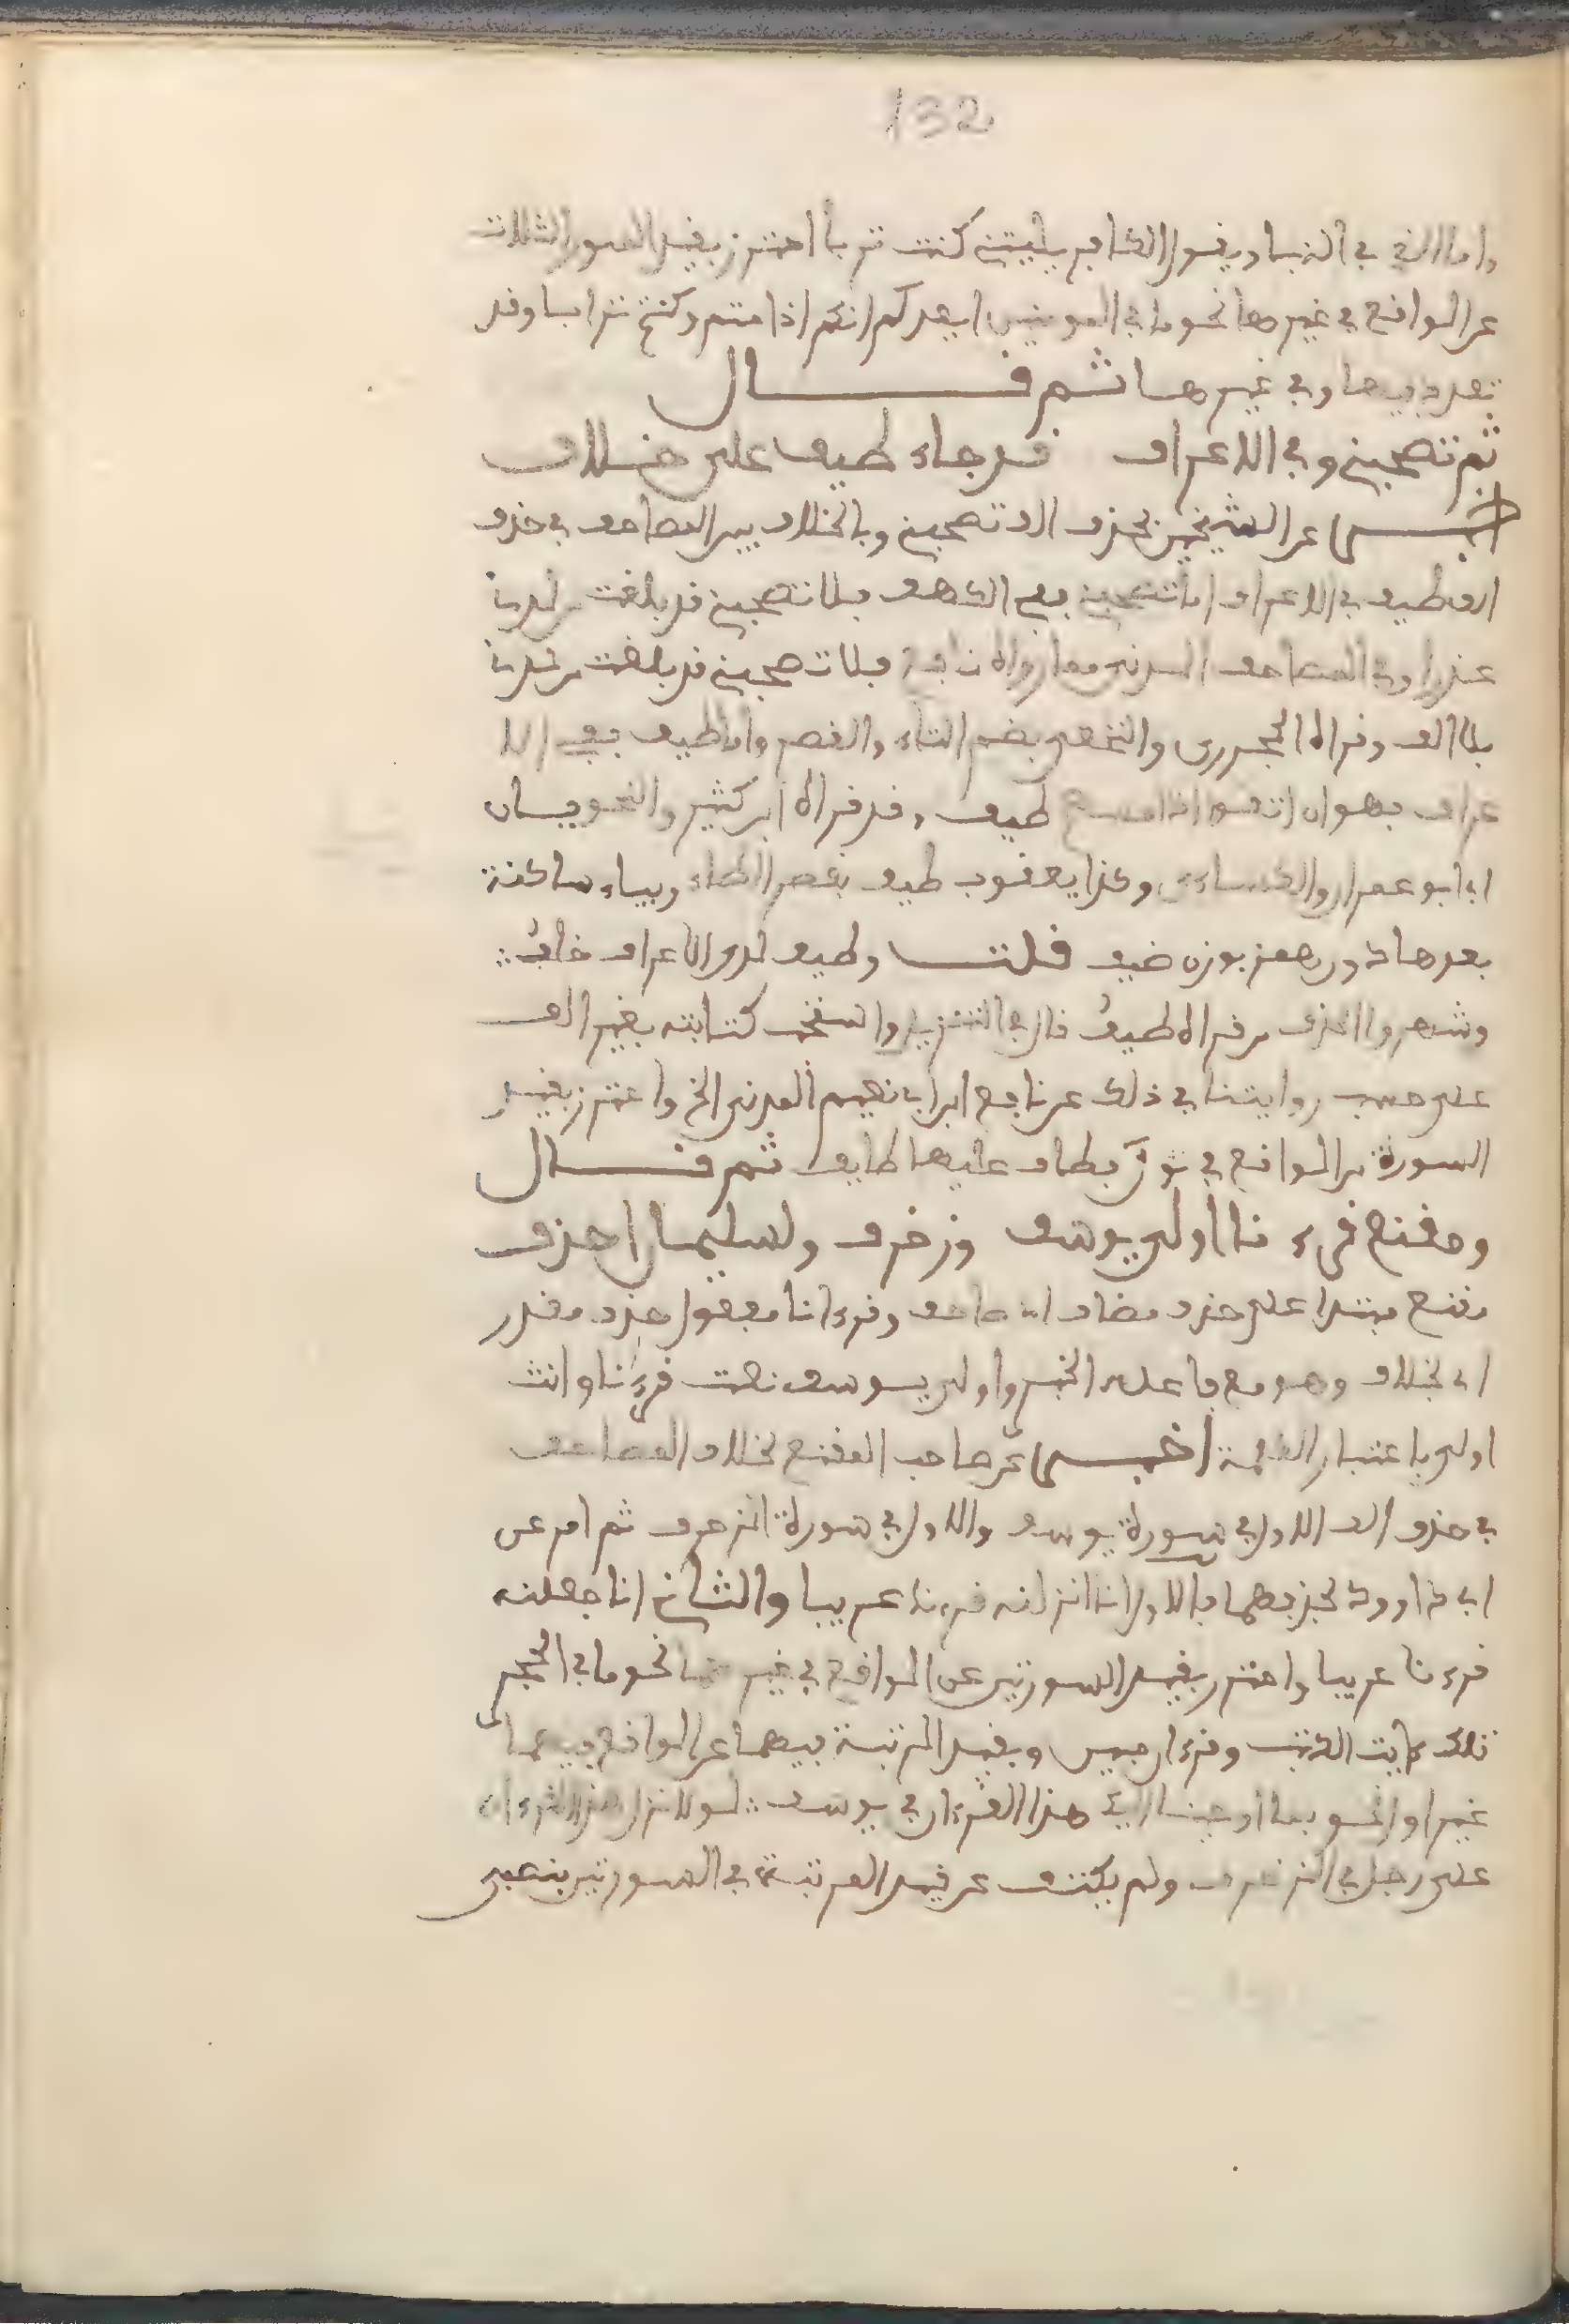 132
واما الذي في النبا ويقول الكافر يليتني كنت تربا احترز بقيد السور الثلاث
عن الواقع في غيرها نحو ما في المومنين ايعدكم انكم اذا متم وكنتم ترابا وقد
تعدد فيها وفي غيرها ثم قال
ثم تصحبني وفي الاعراف قد جاء طيف على خلاف
اخبر عن الشيخين بحذف الف تصحبني وبالخلاف بين المصاحف في حذف
الف طيف في الاعراف اما تصحبني ففي الكهف فلا تصحبني قد بلغت من لدني
عذرا وفي المصاحف المدني مما رواه نافع فلا تصحبني قد بلغت من لدني
بلا الف وقراه الجحدري والنخعي بضم التاء والقصر واما طيف ففي الا
عراف فهو ان اتقوا اذا مسهم طيف وقد قراه ابن كثير والنحويان
اي ابو عمرو والكساءي وكذا يعقوب طيف بقصر الطاء وبياء ساكنة
بعدها دون همز بوزن ضيف قلت وطيف لدى الاعراف خلف
وشهروا الحذف من قراه طيف قال في التنزيل واستحب كتابته بغير الف
على حسب روايتنا في ذلك عن نافع ابن ابي نعيم المدني الخ واحترز بقيد
السورة من الواقع في نون فطاف عليها طايف ثم قال
ومقنع قرء نا اولى يوسف وزخرف ولسليمان احذف
مقنع مبتدا على حذف مضاف اي صاحب وقرءانا مفعول حذف مقدر
اي بخلاف وهو مع فاعله الخبر واولى يوسف نعت قرءنا وانث
اولى باعتبار الكلمة اخبر عن صاحب المقنع بخلاف المصاحف
في حذف الف الاول في سورة يوسف والاول في سورة الزخرف ثم امر عن
ابي داوود بحذفهما فالاول انا انزلنه قرءنا عربيا والثاني انا جعلنه
قرءنا عربيا واحترز بقيد السورتين عن الواقع في غيرهما نحو ما في الحجر
تلك ءايت الكتب وقرءان مبين وبقيد المرتبة فيهما عن الواقع فيهما
غير اول نحو بما اوحينا اليك هذا القرءان في يوسف لولا نزل هذا القرءان
على رجل في الزخرف ولم يكتف عن قيد المرتبة في السورتين بتعين